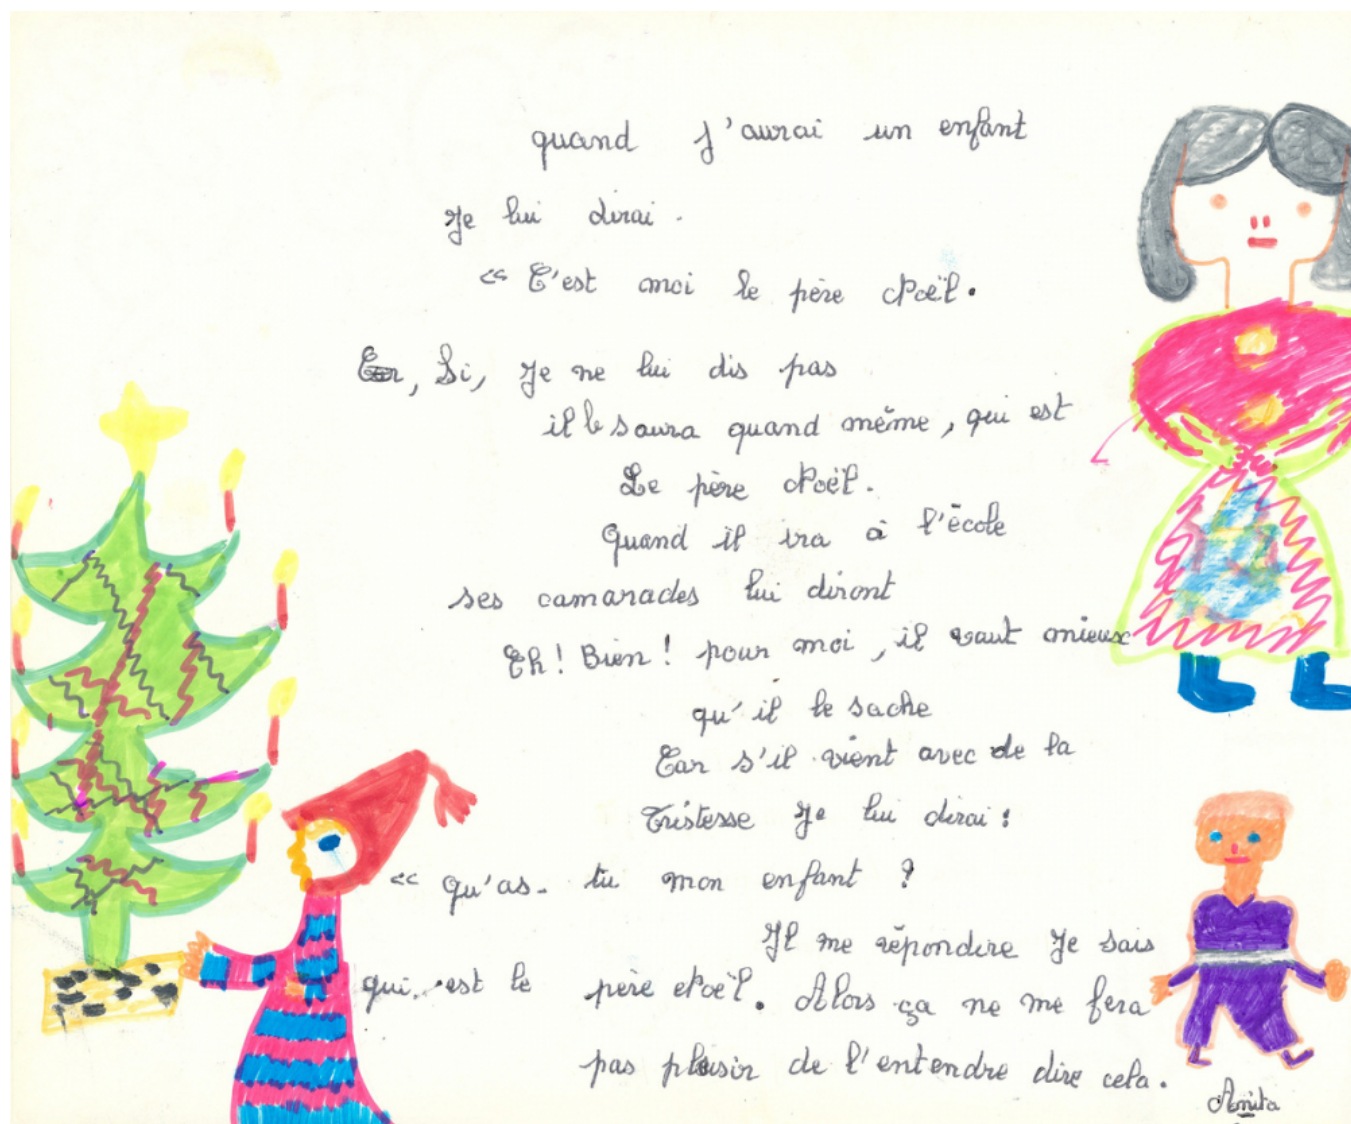 quand j'aurai un enfant
Je lui dirai.
« C'est moi le père Noël.
Car, Si, Je ne lui dis pas
il le saura quand même, qui est
Le père Noël.
Quand il ira à l'école
ses camarades lui diront
Eh! Bien! pour moi, il vaut mieux
qu'il le sache
Car s'il vient avec de la
Tristesse Je lui dirai:
« Qu'as-tu mon enfant ?
Il me répondire Je sais
qui est le père Noël. Alors ça ne me fera
pas plaisir de l'entendre dire cela.
Anita